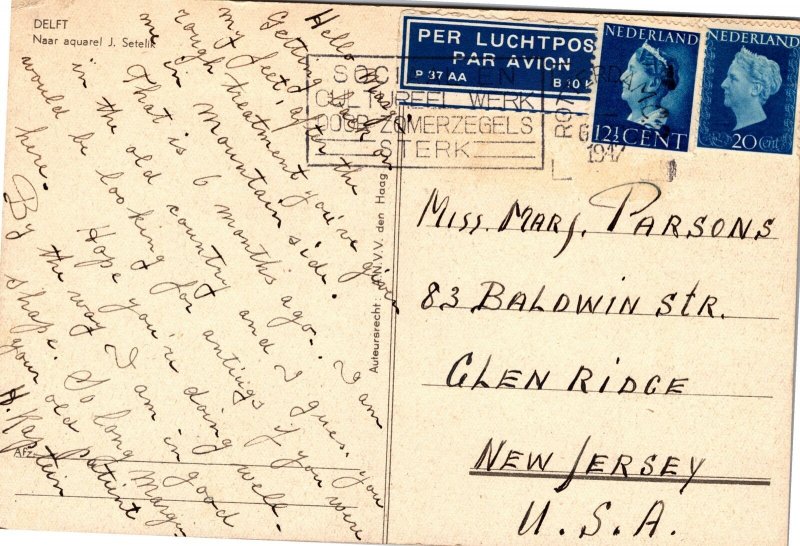 DELFT
Naar aquarel J. Setelik
Hello Margi
Getting back on
my feet, after the
rough treatment you've given
me in mountain side.
That is 6 months ago. I am
in the old country and I guess you
would be looking for antings if you were
here. Hope you're doing well.
By the way I am in good
shape. So long Margi
your old patient
H. Kaptein
Afz.
Auteursrecht N.V.V. den Haag
PER LUCHTPOS
PAR AVION
P 37 AA
NEDERLAND
12½ CENT
NEDERLAND
20 cent
SOCI EN
CULTUREEL WERK
DOOR ZOMERZEGELS
STERK
1947
MISS. MARJ. PARSONS
83 BALDWIN STR.
GLEN RIDGE
NEW JERSEY
U. S. A.